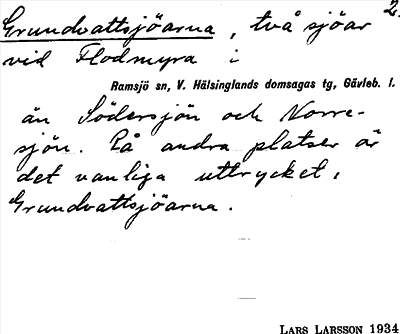 2.
Grundvattsjöarna, två sjöar
vid Flodmyra i
Ramsjö sn, V. Hälsinglands domsagas tg, Gävleb. l.
än Södersjön och Norre-
sjön. På andra platser är
det vanliga uttrycket,
Grundvattsjöarna.
LARS LARSSON 1934